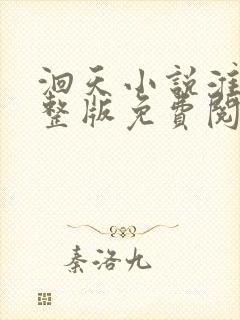 洄天小说淮
整版免費閱
秦洛九